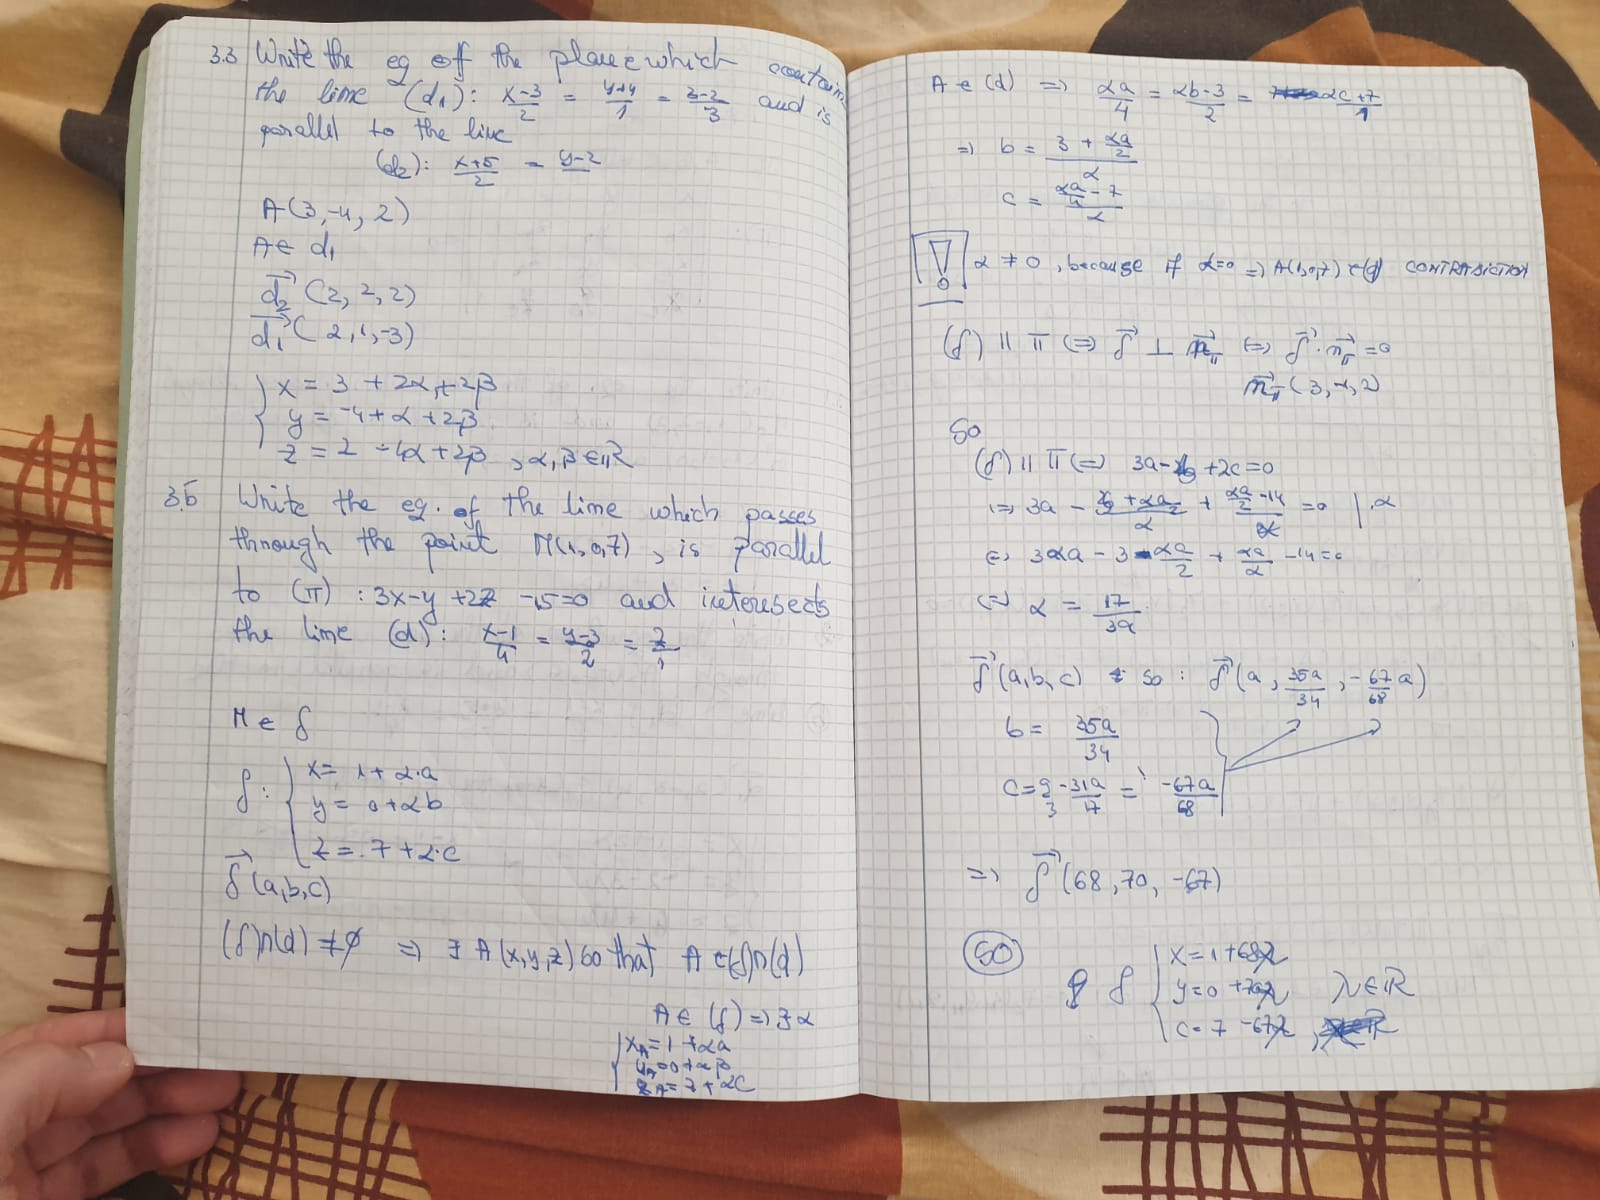 3.3 Write the eq off the plane which contain
the line (d₁): x-3/2 = y+4/1 = z-2/-3 and is
parallel to the line
(d₂): x+5/2 = y-2
A(3,-4, 2)
A ∈ d₁
d₂→ (2, 2, 2)
d₁→ (2, 1, -3)
{ x = 3 + 2α + 2β
y = -4 + α + 2β
z = 2 - 4α + 2β , α, β ∈ ℝ
3.5 Write the eq. of the line which passes
through the point M(1,0,7), is parallel
to (π) : 3x-y+2z -15=0 and intersects
the line (d): x-1/4 = y-3/2 = z/1
M ∈ δ
δ: { x = 1 + α·a
y = 0 + αb
z = 7 + α·c
δ→ (a,b,c)
(δ)∩(d) ≠ ∅ => ∃ A(x,y,z) so that A ∈ (δ)∩(d)
A ∈ (δ) => ∃ α
{ x_A = 1 + αa
y_A = 0 + αβ
z_A = 7 + αc
A ∈ (d) => αa/4 = αb-3/2 = αc+7/1
=> b = 3 + αa/2 / α
c = αa/4 - 7 / α
! α ≠ 0, because if α=0 => A(1,0,7) ∈ (d) CONTRADICTION
(δ) || π <=> δ→ ⊥ n→π <=> δ→ · n→π = 0
n→π (3,-1,2)
So
(δ) || π <=> 3a - b + 2c = 0
<=> 3a - 3 + αa/2 / α + αa/2 - 14 / α = 0 | ·α
<=> 3αa - 3 - αa/2 + αa/2 - 14 = 0
<=> α = 17/3a
δ→ (a,b,c) so : δ→ (a, 35a/34, -67/68 a)
b = 35a/34
c = -67a/68
=> δ→ (68, 70, -67)
SO
δ { x = 1 + 68λ
y = 0 + 70λ λ ∈ ℝ
c = 7 - 67λ